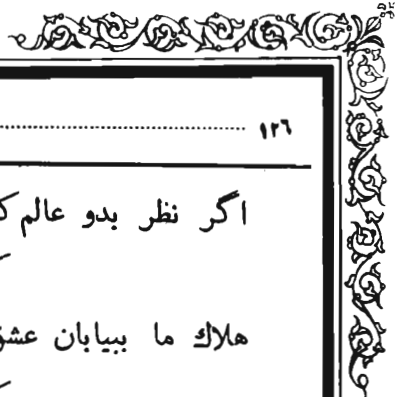 ١٢٦
اگر نظر بدو عالم
هلاك ما ببیابان عشق